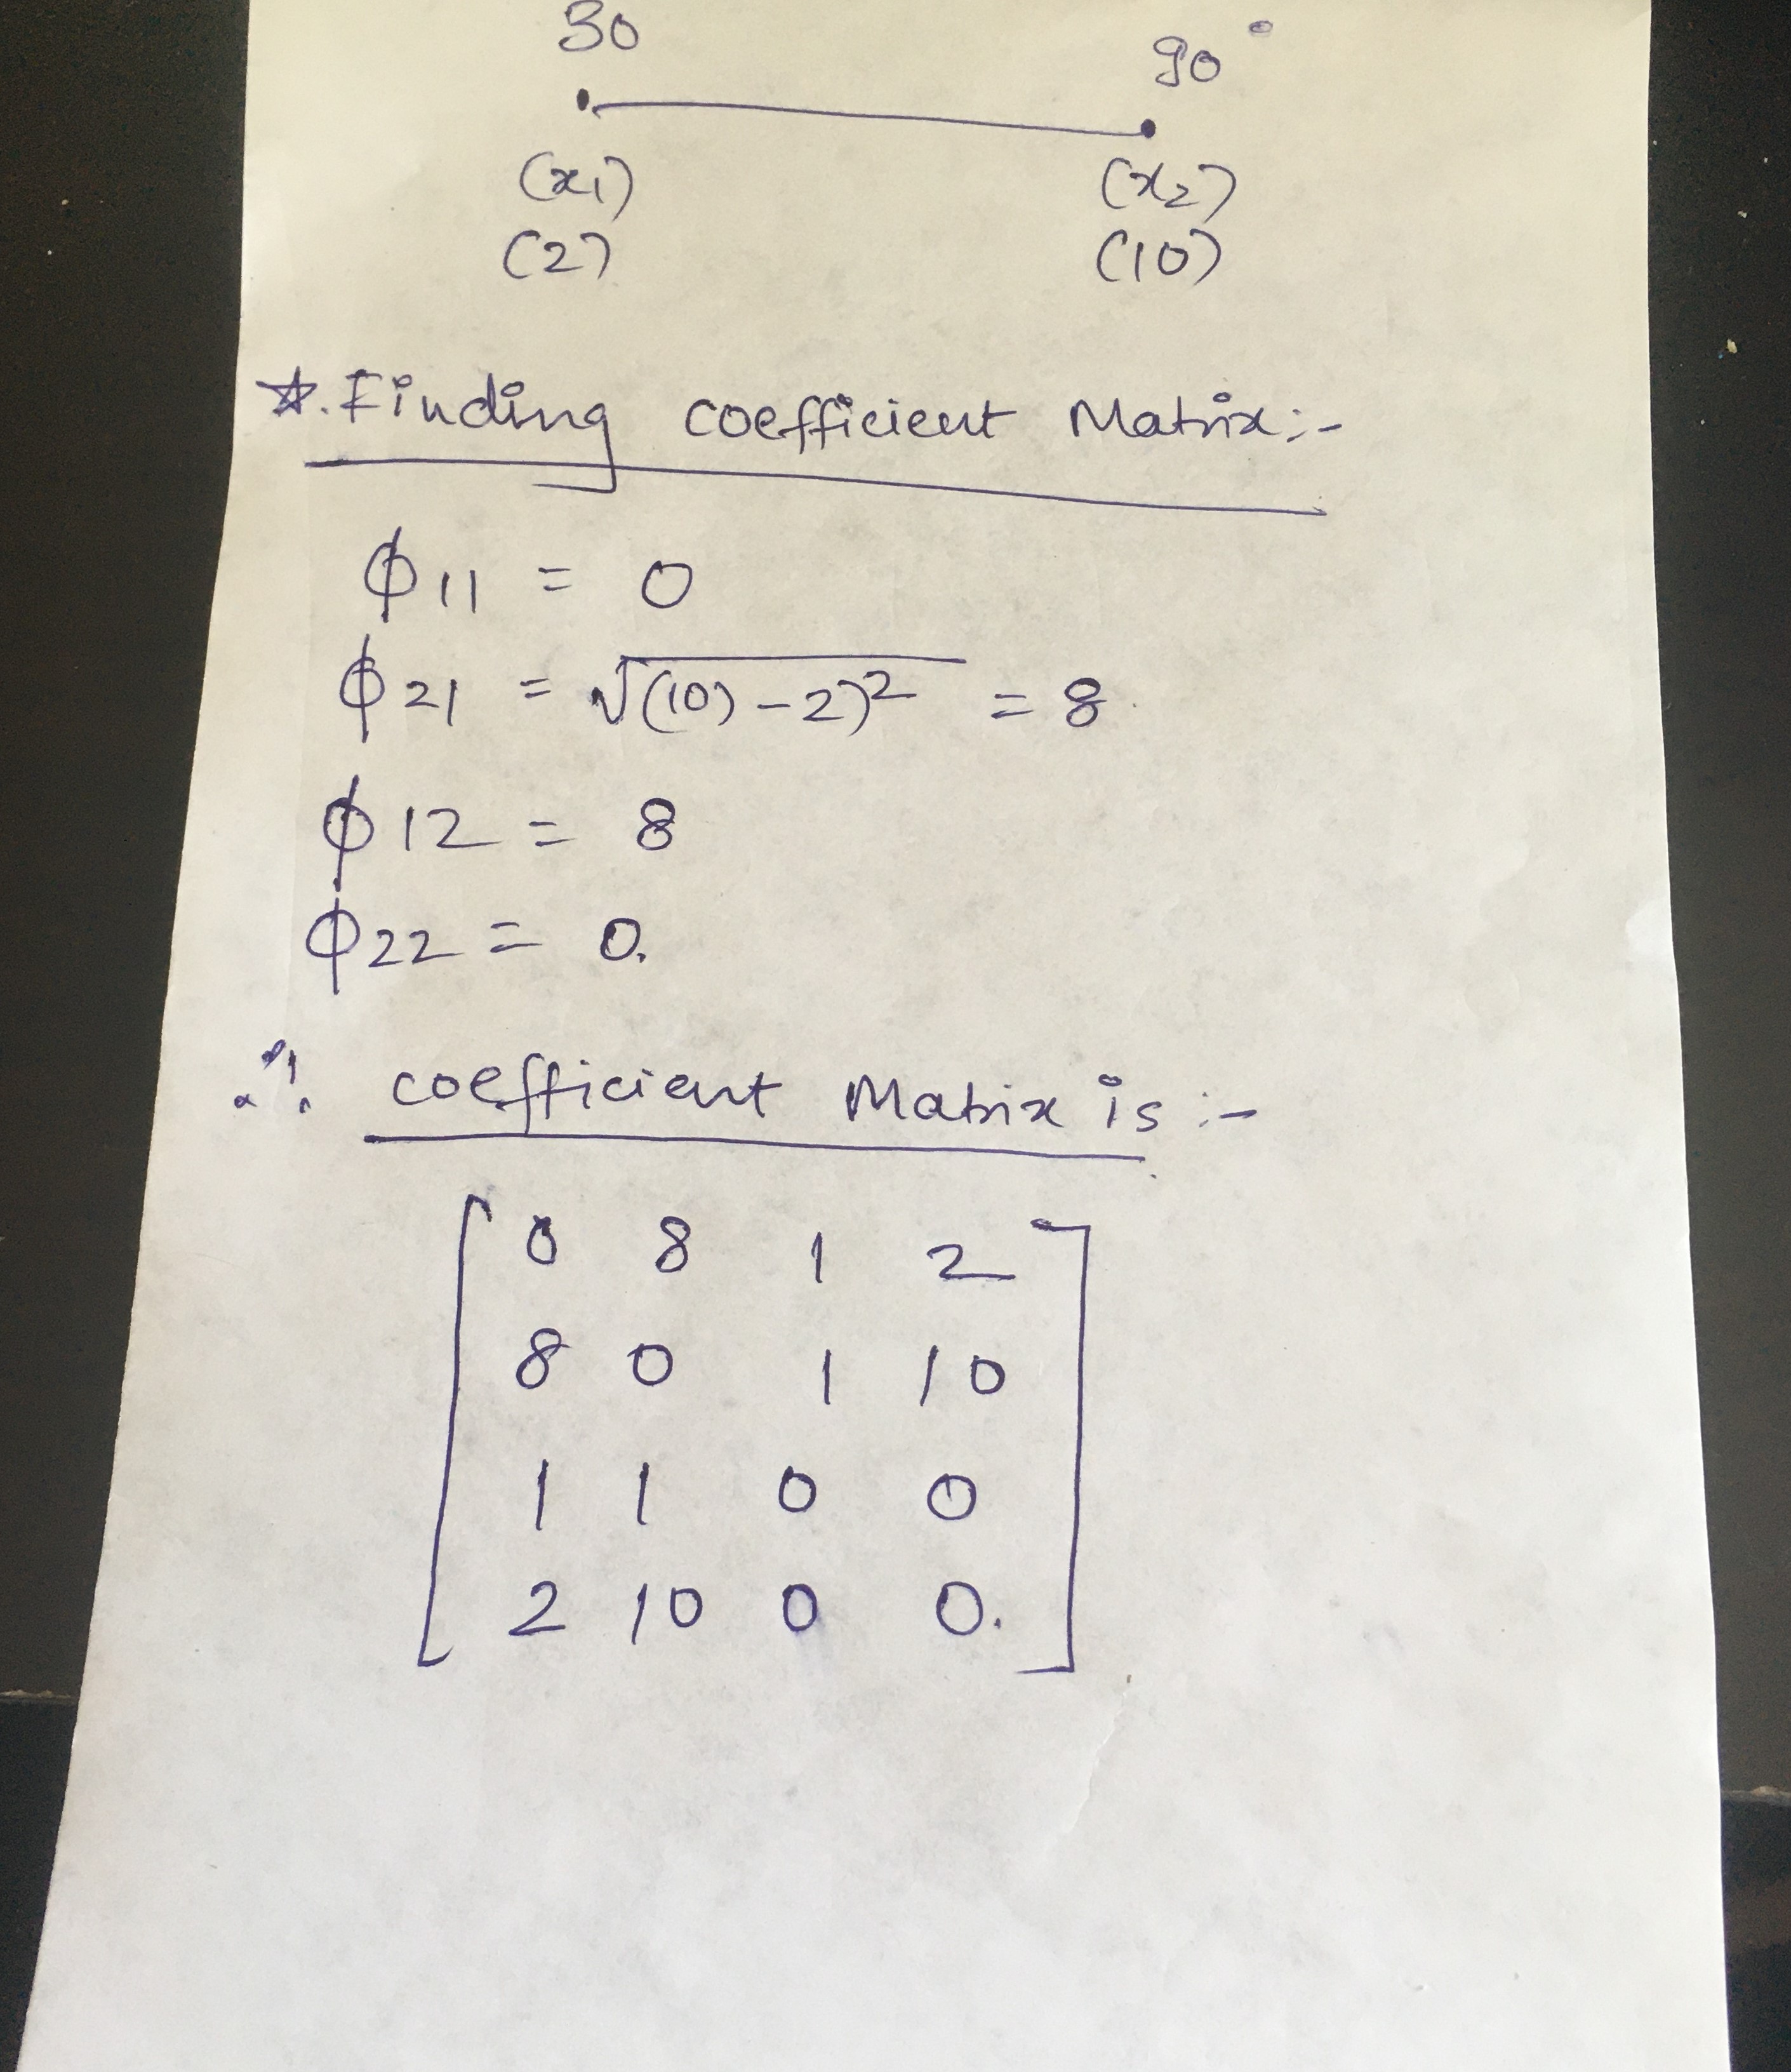 30 90°
(x1) (x2)
(2) (10)
☆. Finding coefficient Matrix:-
ϕ11 = 0
ϕ21 = √(10) - 2)² = 8
ϕ12 = 8
ϕ22 = 0.
∴ coefficient Matrix is :-
0 8 1 2
8 0 1 10
1 1 0 0
2 10 0 0.